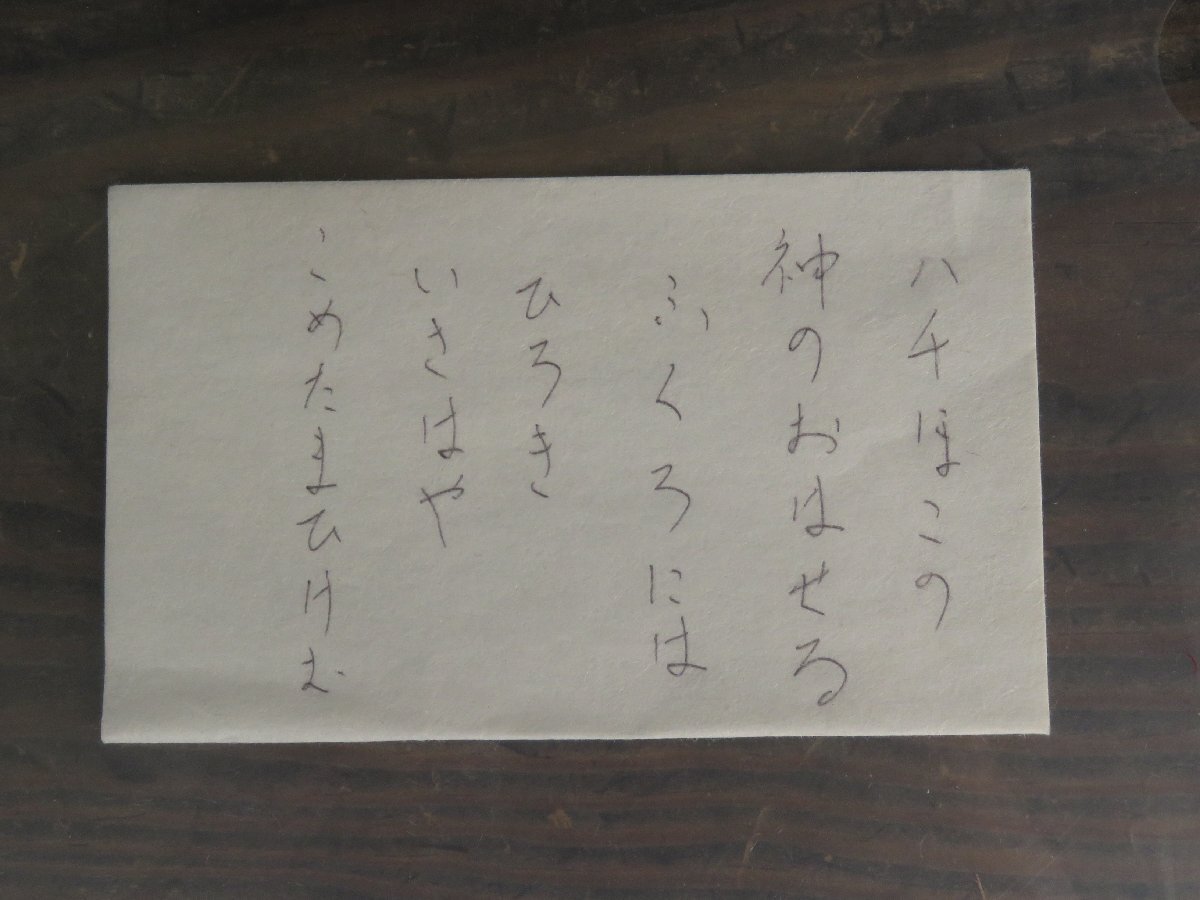 八千ほこの
神のおはせる
ふくろには
ひろき
いさはや
こめたまひけむ